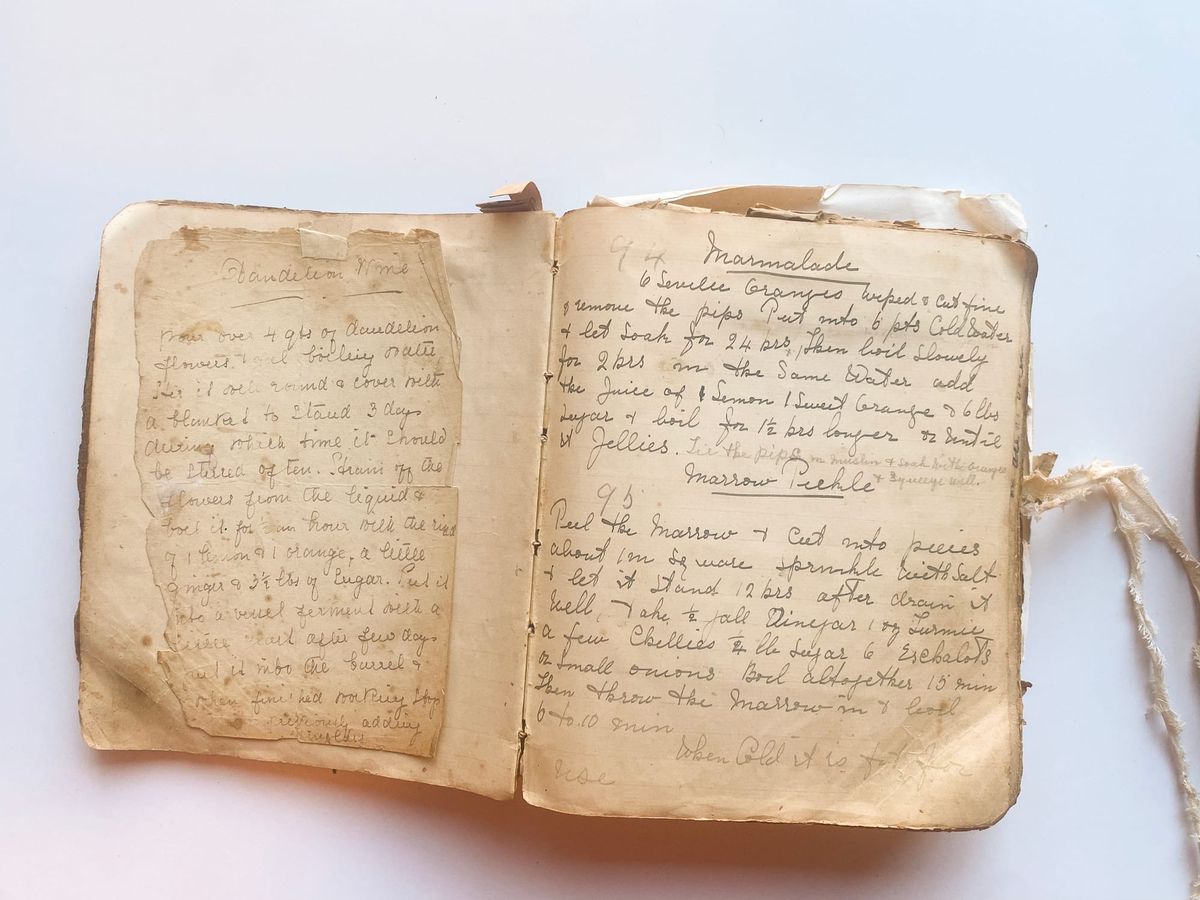 Dandelion Wine
Pour over 4 qts of dandelion
flowers boiling water
Stir it well round & cover with
a blanket to stand 3 days
during which time it should
be stirred often. Strain off the
flowers from the liquid &
boil it for ½ an hour with the rind
of 1 lemon & 1 orange, a little
ginger & 3½ lbs of sugar. Put it
into a vessel ferment with a
little yeast after few days
put it into the barrel &
when finished working stop
previously adding
94 Marmalade
6 Seville Oranges wiped & cut fine
& remove the pips Put into 6 pts Cold Water
& let Soak for 24 hrs, Then boil Slowly
for 2 hrs in the Same Water add
the Juice of 1 Lemon 1 Sweet Orange & 6 lbs
Sugar & boil for 1½ hrs longer or until
it Jellies. Tie the pips in muslin & soak with the oranges
& squeeze well.
Marrow Pickle
95
Peel the Marrow & Cut into pieces
about 1 in Square Sprinkle with Salt
& let it Stand 12 hrs after drain it
Well, Take ½ gall Vinegar 1 oz Turmic
a few Chillies ½ lb Sugar 6 Eschalots
or Small onions Boil altogether 15 min
Then throw the Marrow in & boil
6 to 10 min
When Cold it is fit for
use